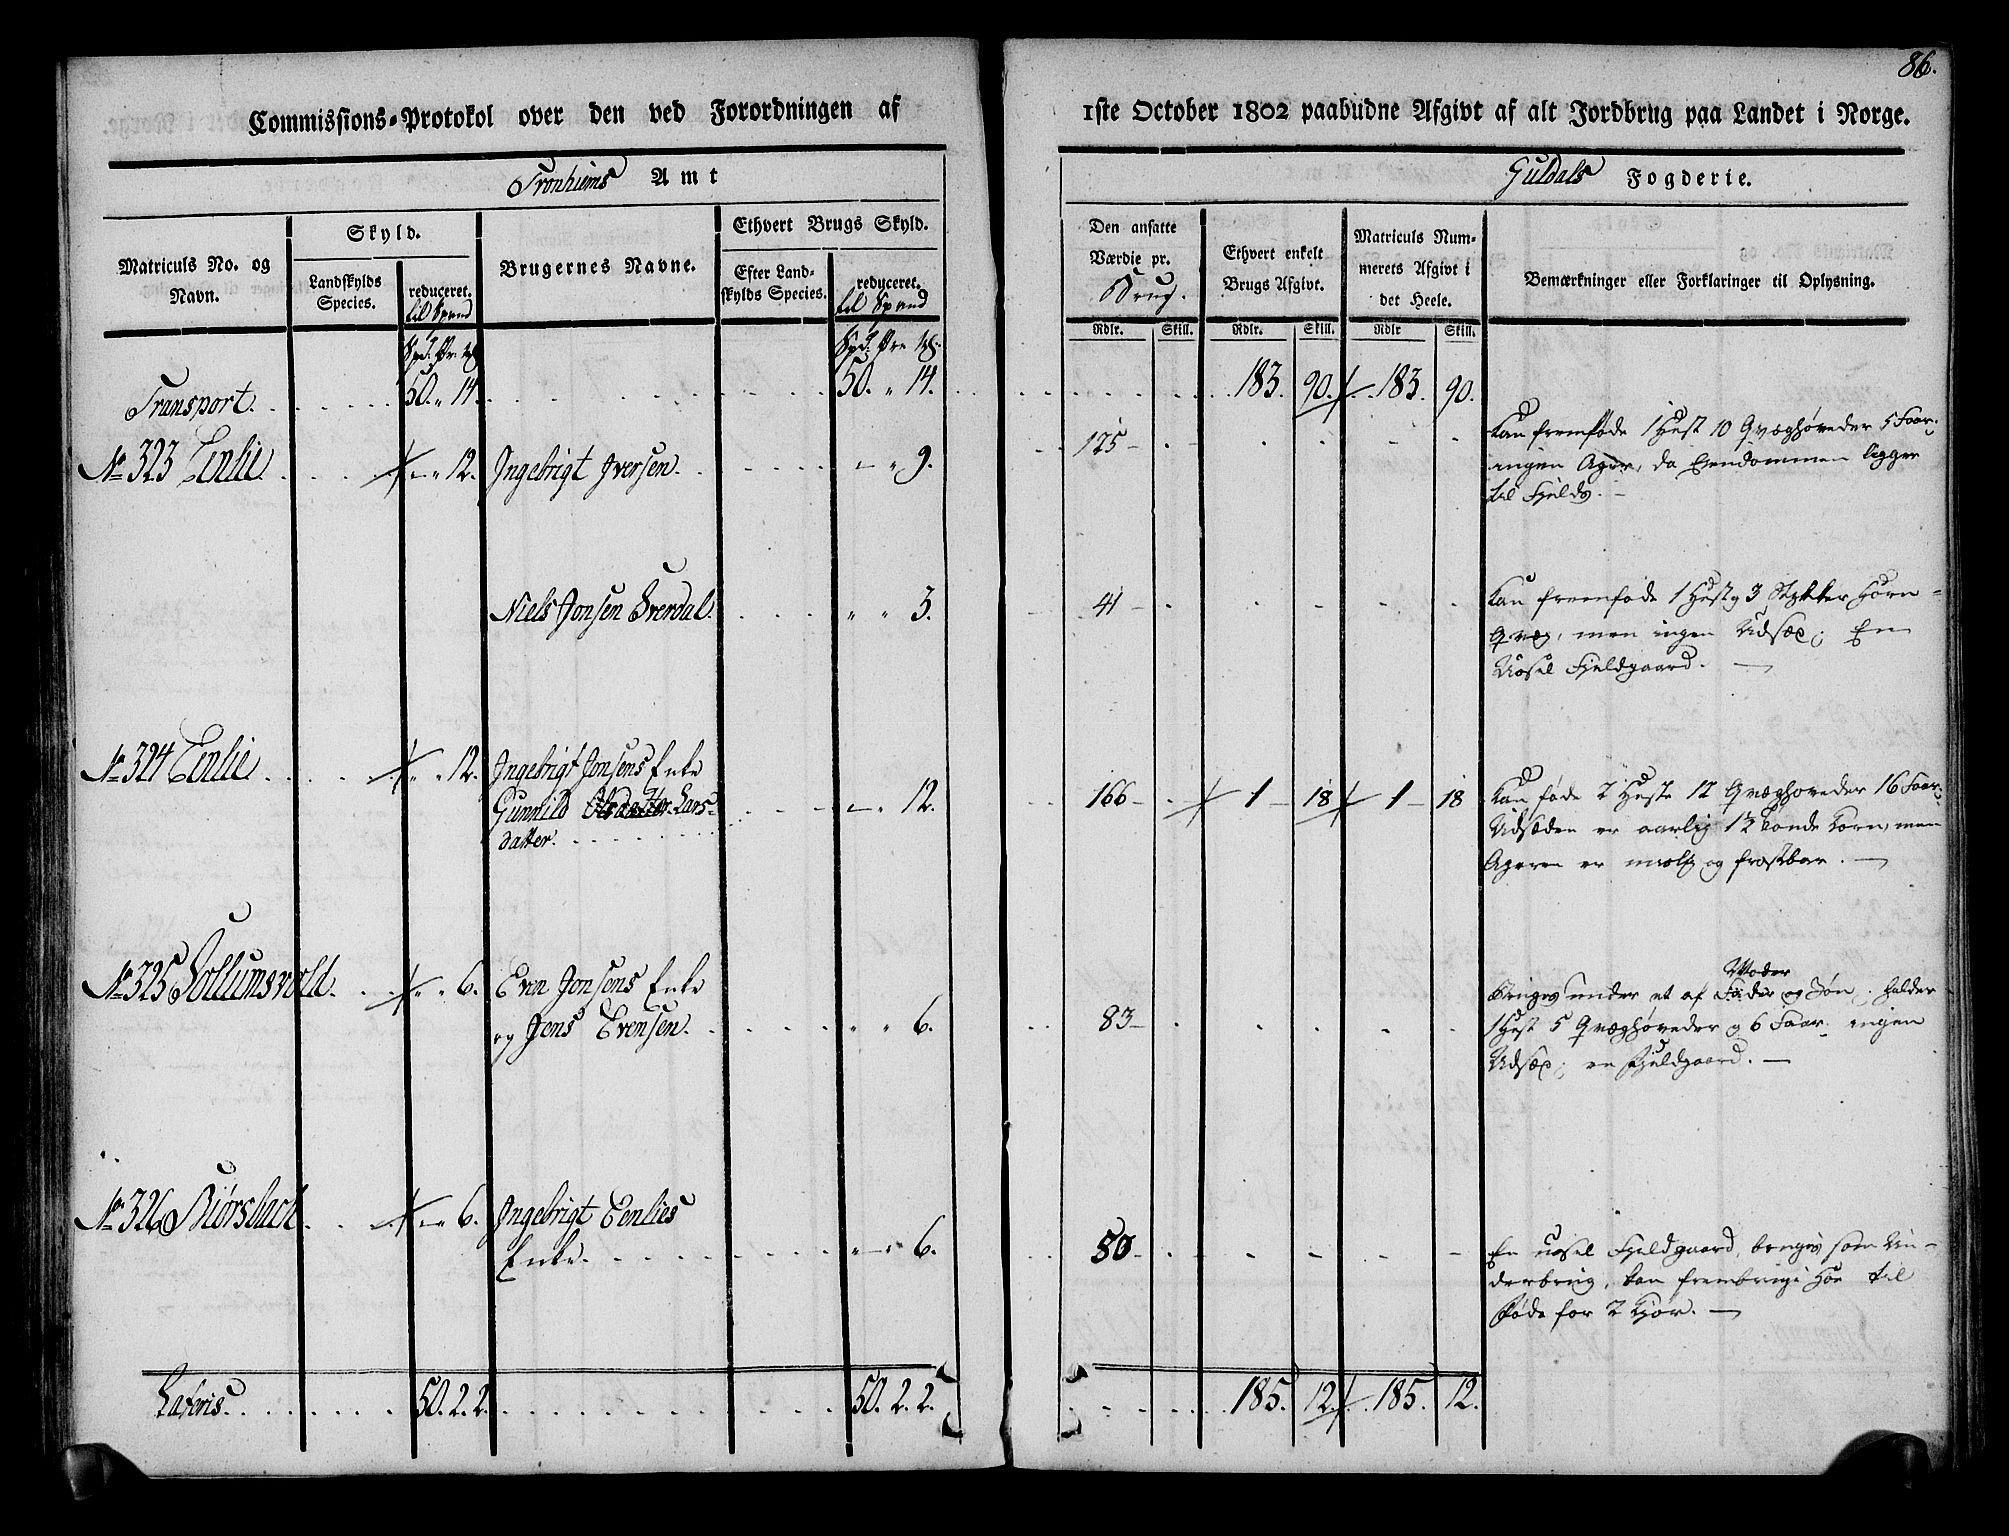 86.
Commissions-Protokol over den ved Forordningen af 1ste October 1802 paabudne Afgivt af alt Jordbrug paa Landet i Norge.
Tronhiems Amt Guldals Fogderie.
Matriculs No. og Navn.
Skyld.
Landskylds Species.
reduceret. til Spand
Brugernes Navne.
Ethvert Brugs Skyld.
Efter Landskylds Species.
reduceret. til Spand
Den ansatte Værdie pr. Brug.
Ethvert enkelt Brugs Afgivt.
Matriculs Nummerets Afgivt i det Heele.
Bemærkninger eller Forklaringer til Oplysning.
Rdlr. Skill. Rdlr. Skill. Rdlr Skill.
Transport. 50. " 14. 50. " 14. 183. 90. 183. 90.
No 323 Enlie 12. Ingebrigt Iversen. " 9. 125
Kan fremføde 1 Hest 10 Qvæghøveder 5 Faar.
ingen Ager, da Eiendommen ligger
til Fields.
Niels Jonsen Sverdal. " " 3. 41
Kan fremføde 1 Hest og 3 Stykker Horn-
Qvæg, men ingen Udsæd; En
Ussel Fieldgaard.
No 324 Enlie 12. Ingebrigt Jonsens Enke
Gunnild Lars-
datter. 12. 166 1 18 1 18
Kan føde 2 Heste 12 Qvæghøveder 16 Faar.
Udsæden er aarlig 1½ Tønde Korn, men
Ageren er uvis og frostbar.
No 325 Sollumsvold. 6. Even Jonsens Enke
og Jens Evensen. " " 6. 83
Bruges under et af Moder og Søn, holder
1 Hest 5 Qvæghøveder og 6 Faar. ingen
Udsæd; en Fieldgaard.
No 326 Biørsbach. 6. Ingebrigt Eenlies
Enke. 6. 50
En ussel Fieldgaard, bruges som Un-
derbrug, kan frembringe Høe til
Føde for 2 Kiør.
Lateris. 50. 2. 2. 50. 2. 2. 185. 12. 185. 12.